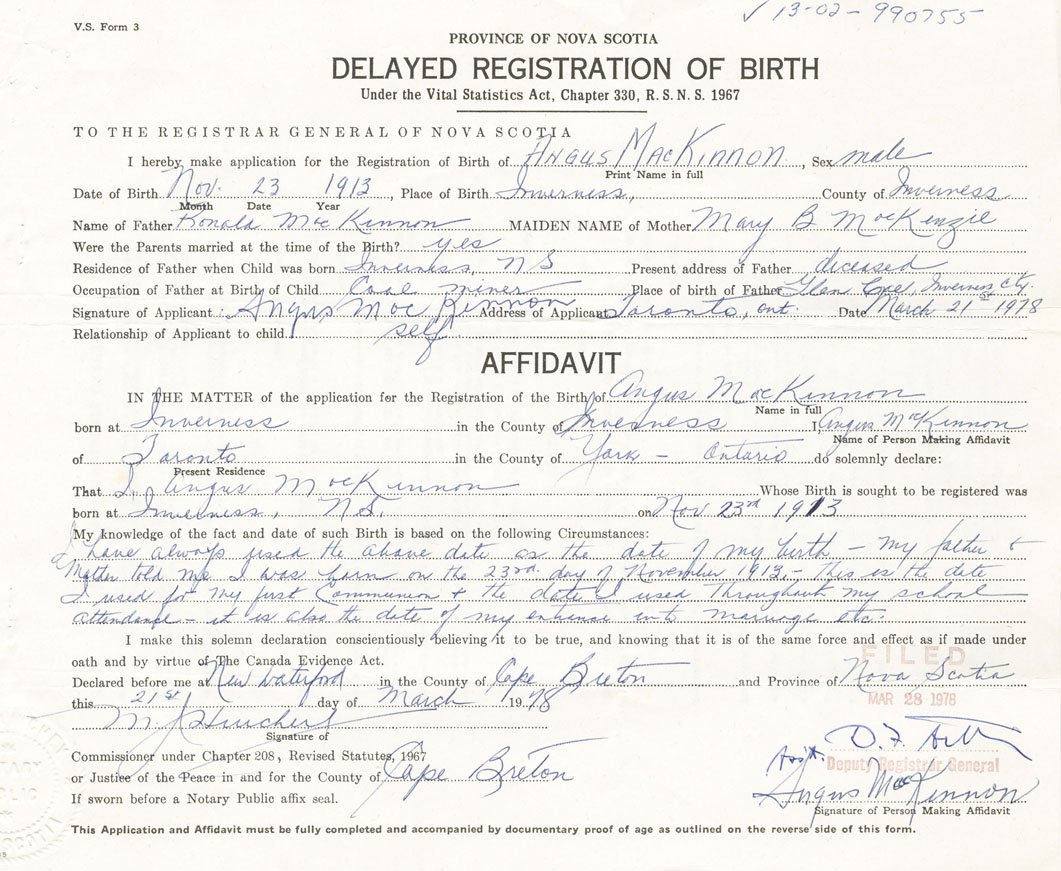 V.S. Form 3
✓ 13-02-990755
PROVINCE OF NOVA SCOTIA
DELAYED REGISTRATION OF BIRTH
Under the Vital Statistics Act, Chapter 330, R.S.N.S. 1967
TO THE REGISTRAR GENERAL OF NOVA SCOTIA
I hereby make application for the Registration of Birth of Angus MacKinnon, Sex male
Print Name in full
Date of Birth Nov. 23 1913, Place of Birth Inverness, County of Inverness
Month Date Year
Name of Father Ronald MacKinnon MAIDEN NAME of Mother Mary B MacKenzie
Were the Parents married at the time of the Birth? yes
Residence of Father when Child was born Inverness, NS Present address of Father deceased
Occupation of Father at Birth of Child Coal miner Place of birth of Father Glen Inverness Cty.
Signature of Applicant: Angus MacKinnon Address of Applicant Toronto, ont. Date March 21st 1978
Relationship of Applicant to child self
AFFIDAVIT
IN THE MATTER of the application for the Registration of the Birth of Angus MacKinnon
Name in full
born at Inverness in the County of Inverness I, Angus MacKinnon
Name of Person Making Affidavit
of Toronto in the County of York - Ontario do solemnly declare:
Present Residence
That I, Angus MacKinnon Whose Birth is sought to be registered was
born at Inverness, N.S. on Nov 23rd 1913
My knowledge of the fact and date of such Birth is based on the following Circumstances:
I have always used the above date as the date of my birth - my father +
Mother told me I was born on the 23rd. day of November 1913, - This is the date
I used for my first Communion + the date I used throughout my school
attendance - it is also the date of my entrance into marriage etc.
I make this solemn declaration conscientiously believing it to be true, and knowing that it is of the same force and effect as if made under
oath and by virtue of The Canada Evidence Act.
FILED
Declared before me at New Waterford in the County of Cape Breton and Province of Nova Scotia
this 21st day of March 1978
MAR 28 1978
Signature of
Commissioner under Chapter 208, Revised Statutes, 1967
Deputy Registrar General
or Justice of the Peace in and for the County of Cape Breton
Angus MacKinnon
If sworn before a Notary Public affix seal.
Signature of Person Making Affidavit
This Application and Affidavit must be fully completed and accompanied by documentary proof of age as outlined on the reverse side of this form.